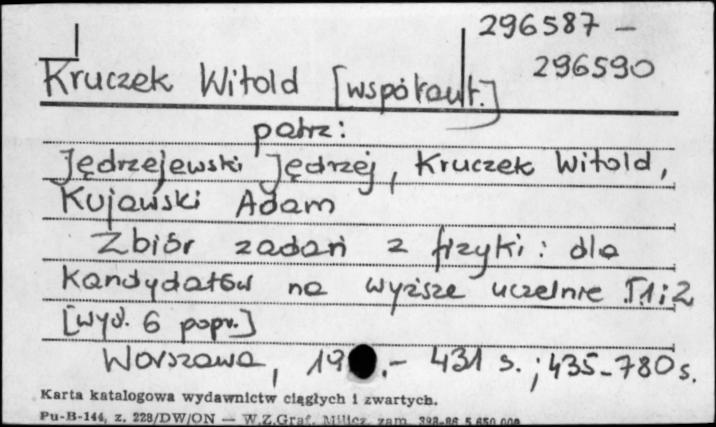 296587 -
296590
Kruczek Witold [współaut.]
patrz:
Jędrzejewski Jędrzej, Kruczek Witold,
Kujawski Adam
Zbiór zadań z fizyki: dla
kandydatów na wyższe uczelnie T.1i2
[wyd. 6 popr.]
Warszawa, 19 .- 431 s.; 435-780 s.
Karta katalogowa wydawnictw ciągłych i zwartych.
Pu-B-144, z. 228/DW/ON — W.Z.Graf. Milicz, zam.